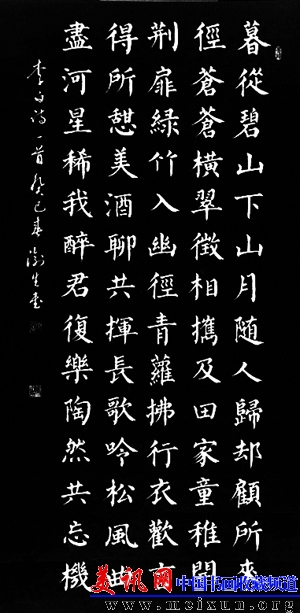 暮從碧山下山月随人歸却顧所來
徑蒼蒼橫翠微相擕及田家童稚開
荆扉綠竹入幽徑青蘿拂行衣歡言
得所憇美酒聊共揮長歌吟松風曲
盡河星稀我醉君復樂陶然共忘機
李白詩一首癸巳春澍生書
美讯网 中国书画收藏频道
www.meixun.org